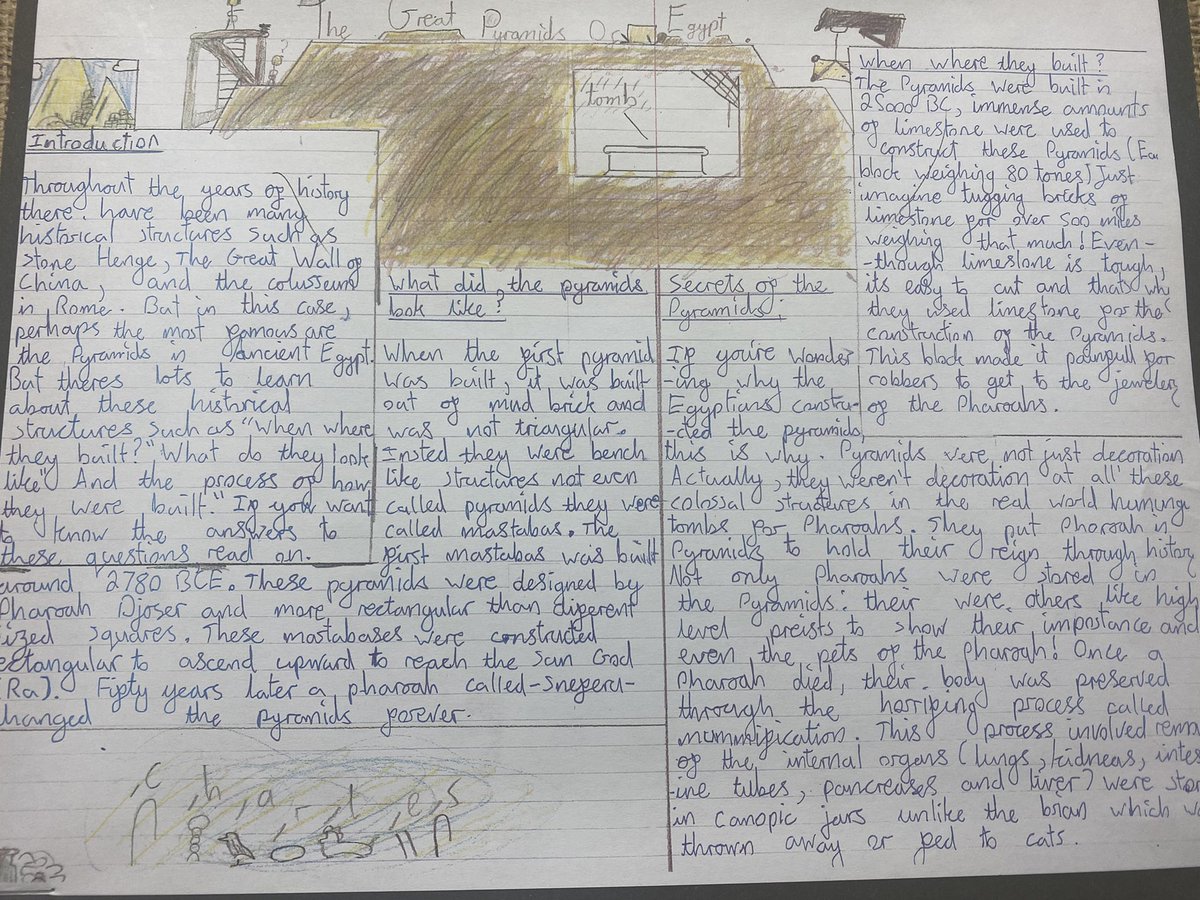 The Great Pyramids Of Egypt
tomb
Introduction
Throughout the years of history
there have been many
historical structures such as
Stone Henge, The Great Wall of
China, and the colusseum
in Rome. But in this case,
perhaps the most famous are
the Pyramids in Ancient Egypt.
But theres lots to learn
about these historical
structures such as "When where
they built?" "What do they look
like" And the process of how
they were built." If you want
to know the answers to
these questions read on.
What did the pyramids
look like?
When the first pyramid
was built, it was built
out of mud brick and
was not triangular.
Insted they were bench
like structures not even
called pyramids they were
called mastabas. The
first mastabas was built
around 2780 BCE. These pyramids were designed by
Pharoah Djoser and more rectangular than different
sized squares. These mastabases were constructed
rectangular to ascend upward to reach the Sun God
(Ra). Fifty years later a pharoah called-Sneferu-
changed the pyramids forever.
,c ,h ,a ,r ,t ,e ,s
Secrets of the
Pyramids:
If you're wonder
-ing why the
Egyptians constru-
-cted the pyramids,
this is why. Pyramids were not just decoration
Actually, they weren't decoration at all these
colossal structures in the real world humung
tombs for Pharoahs. They put Pharoah in
Pyramids to hold their reign through history
Not only Pharoahs were stored in
the Pyramids: their were others like high
level preists to show their importance and
even the pets of the pharoah! Once a
Pharoah died, their body was preserved
through the horrifing process called
mummification. This process involved remo
of the internal organs (lungs, kidneas, intes
-ine tubes, pancreases and liver) were sto
in canopic jars unlike the brian which w
thrown away or fed to cats.
When where they built?
The Pyramids were built in
25000 BC, immense amnounts
of limestone were used to
construct these Pyramids (Ea
block weighing 80 tones) Just
imagine tugging bricks of
limestone for over 500 miles
weighing that much! Even-
-though limestone is tough,
its easy to cut and thats why
they used limestone for the
construction of the Pyramids.
This block made it painfull for
robbers to get, to the jewelery
of the Pharoahs.